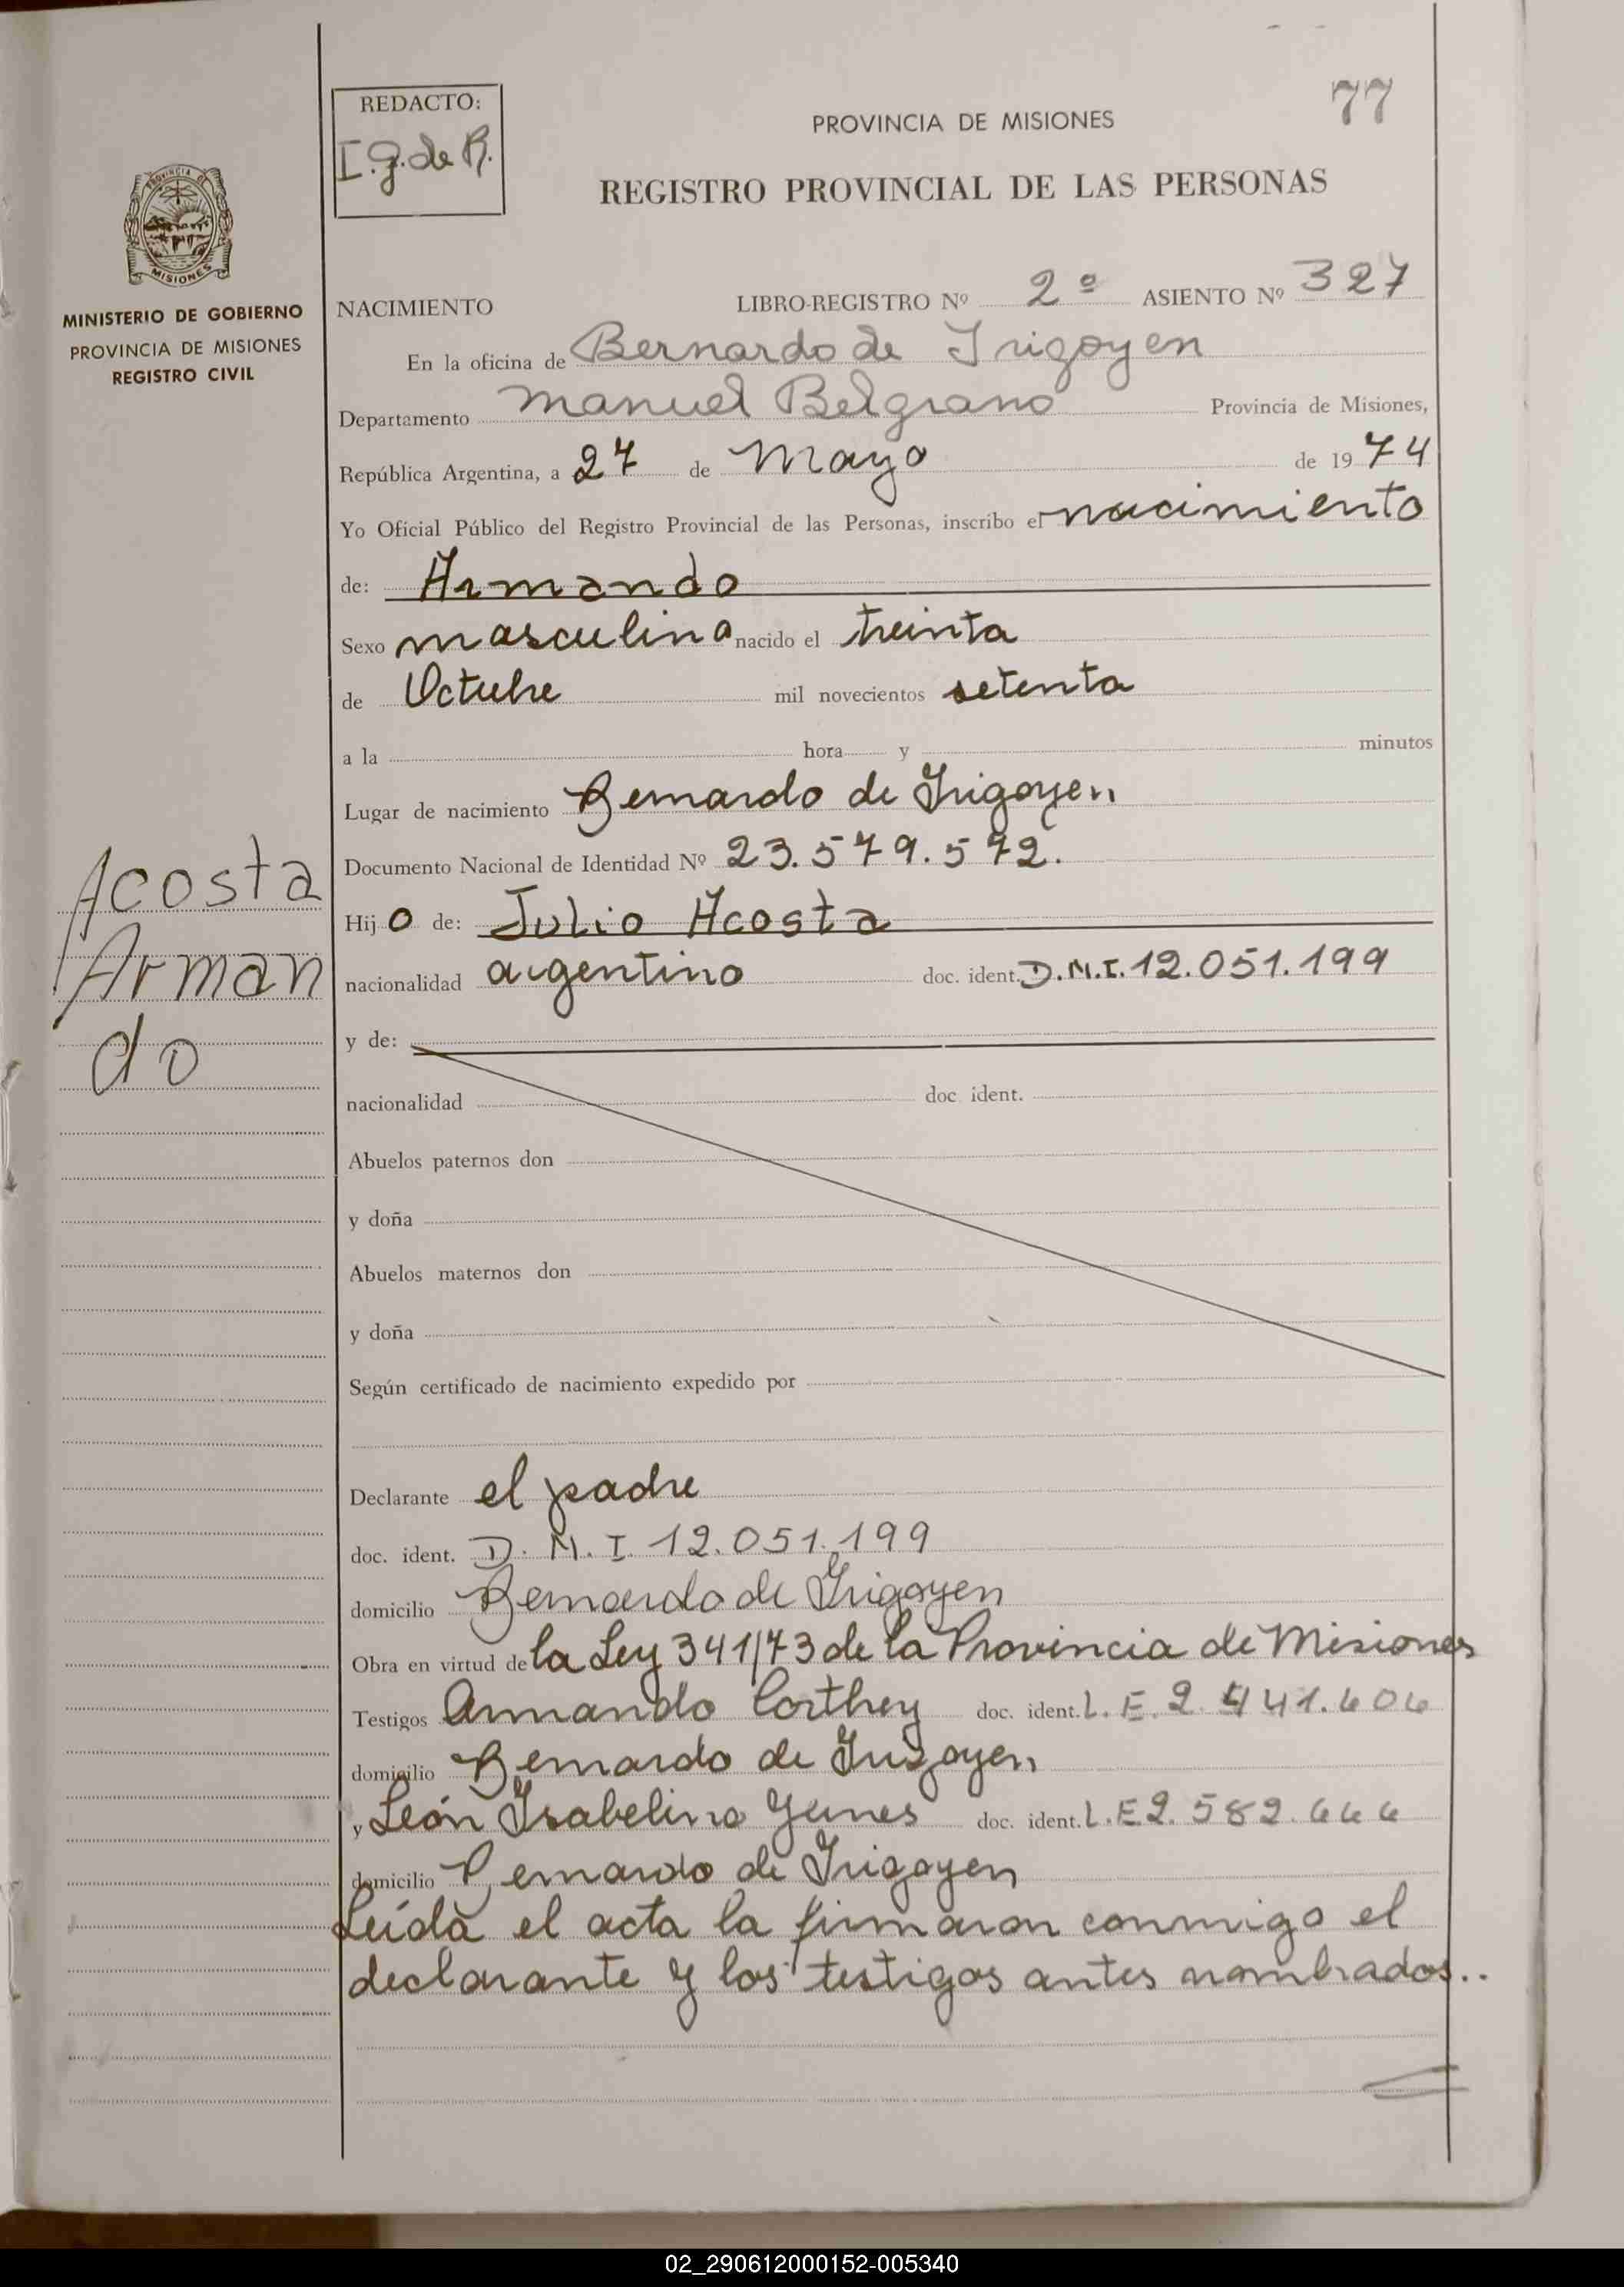 77
REDACTO:
I. G. de R.
PROVINCIA DE MISIONES
REGISTRO PROVINCIAL DE LAS PERSONAS
PROVINCIA DE
MISIONES
MINISTERIO DE GOBIERNO
PROVINCIA DE MISIONES
REGISTRO CIVIL
NACIMIENTO LIBRO-REGISTRO Nº 2º ASIENTO Nº 327
En la oficina de Bernardo de Irigoyen
Departamento Manuel Belgrano Provincia de Misiones,
República Argentina, a 27 de Mayo de 1974
Yo Oficial Público del Registro Provincial de las Personas, inscribo el nacimiento
de: Armando
Sexo masculino nacido el treinta
de Octubre mil novecientos setenta
a la hora y minutos
Lugar de nacimiento Bernardo de Irigoyen
Documento Nacional de Identidad Nº 23.579.572.
Acosta
Arman
do
Hijo de: Julio Acosta
nacionalidad argentino doc. ident. D.M.I. 12.051.199
y de:
nacionalidad doc. ident.
Abuelos paternos don
y doña
Abuelos maternos don
y doña
Según certificado de nacimiento expedido por
Declarante el padre
doc. ident. D. M. I. 12.051.199
domicilio Bernardo de Irigoyen
Obra en virtud de la Ley 341/73 de la Provincia de Misiones
Testigos Armando Corthey doc. ident. L. E. 2.441.606
domicilio Bernardo de Irigoyen
y León Isabelino doc. ident. L.E 2.582.666
domicilio Bernardo de Irigoyen
Leída el acta la firmaron conmigo el
declarante y los testigos antes nombrados..
02_290612000152-005340